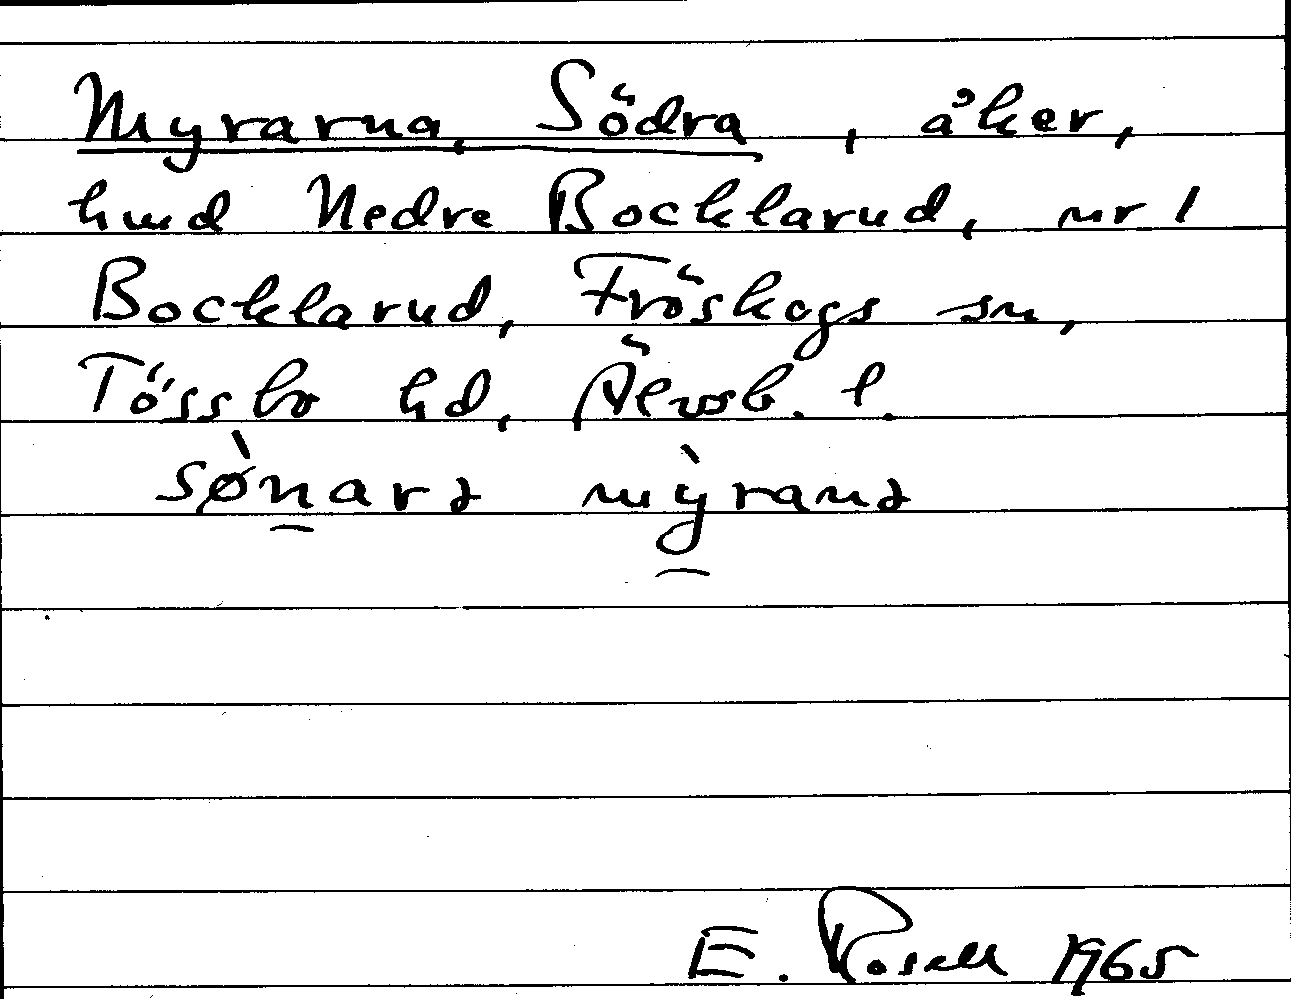 Myrarna, Södra, åker,
hmd Nedre Bocklarud, nr 1
Bocklarud, Fröskogs sn,
Tössbo hd, Älvsb. l.
sø̀narə mỳranə
E. Rosell 1965